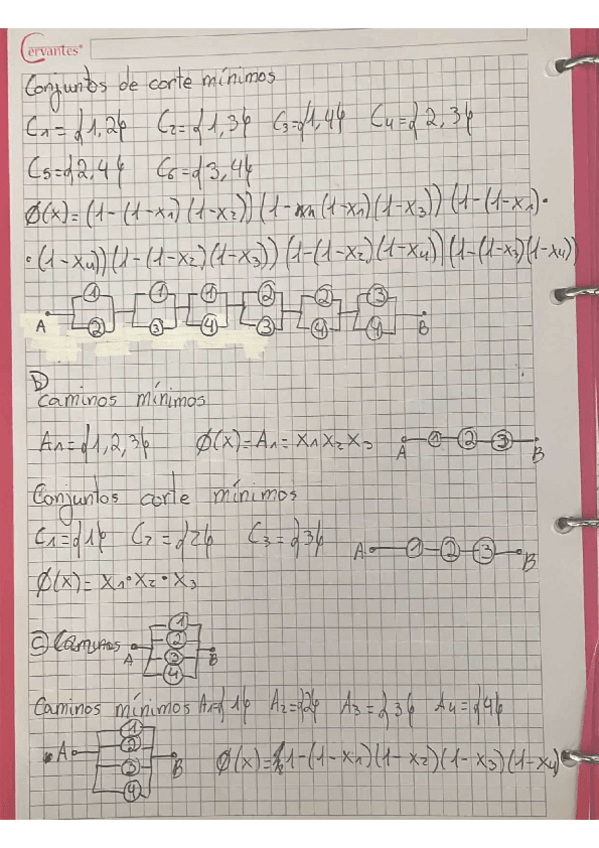 Cervantes
Conjuntos de corte mínimos
C1={1,2} C2={1,3} C3={1,4} C4={2,3}
C5={2,4} C6={3,4}
Ø(x)=(1-(1-x1)(1-x2))(1-(1-x1)(1-x3))(1-(1-x1)·
·(1-x4))(1-(1-x2)(1-x3))(1-(1-x2)(1-x4))(1-(1-x3)(1-x4))
1 1 1 2 2 3
A B
2 3 4 3 4 4
b)
caminos mínimos
A1={1,2,3} Ø(x)=A1=x1x2x3 A 1 2 3 B
Conjuntos corte mínimos
C1={1} C2={2} C3={3} A 1 2 3 B
Ø(x)=x1·x2·x3
c) Caminos A 1 2 3 4 B
Caminos mínimos A1={1} A2={2} A3={3} A4={4}
A 1 2 3 4 B Ø(x)=1-(1-x1)(1-x2)(1-x3)(1-x4)